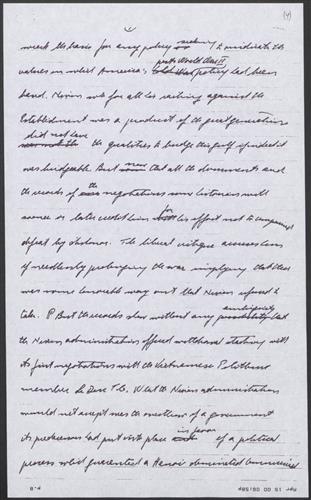 (4)
the basis for any policy seeking to vindicate the
values on which America's post World War II policy had been
based. Nixon for all his railing against the
Establishment was a product of the great generation
did not have the qualities to bridge this gulf if indeed it
was bridgeable. But now that all the documents and
the records of the negotiations some historians will
sooner or later credit him for his effort not to
defeat by . The liberal critique accuses him
of needlessly prolonging the war implying that there
was some honorable way out that Nixon refused to
take. P But the records show without any ambiguity that
the Nixon administration offered withdrawal starting with
its first negotiations with the Vietnamese Politburo
member Le Duc Tho. What the Nixon administration
would not accept was the overthrow of a government
its predecessors had put into place in favor of a political
process which guaranteed a Hanoi dominated communist
p.8
Apr 15 00 05:58p